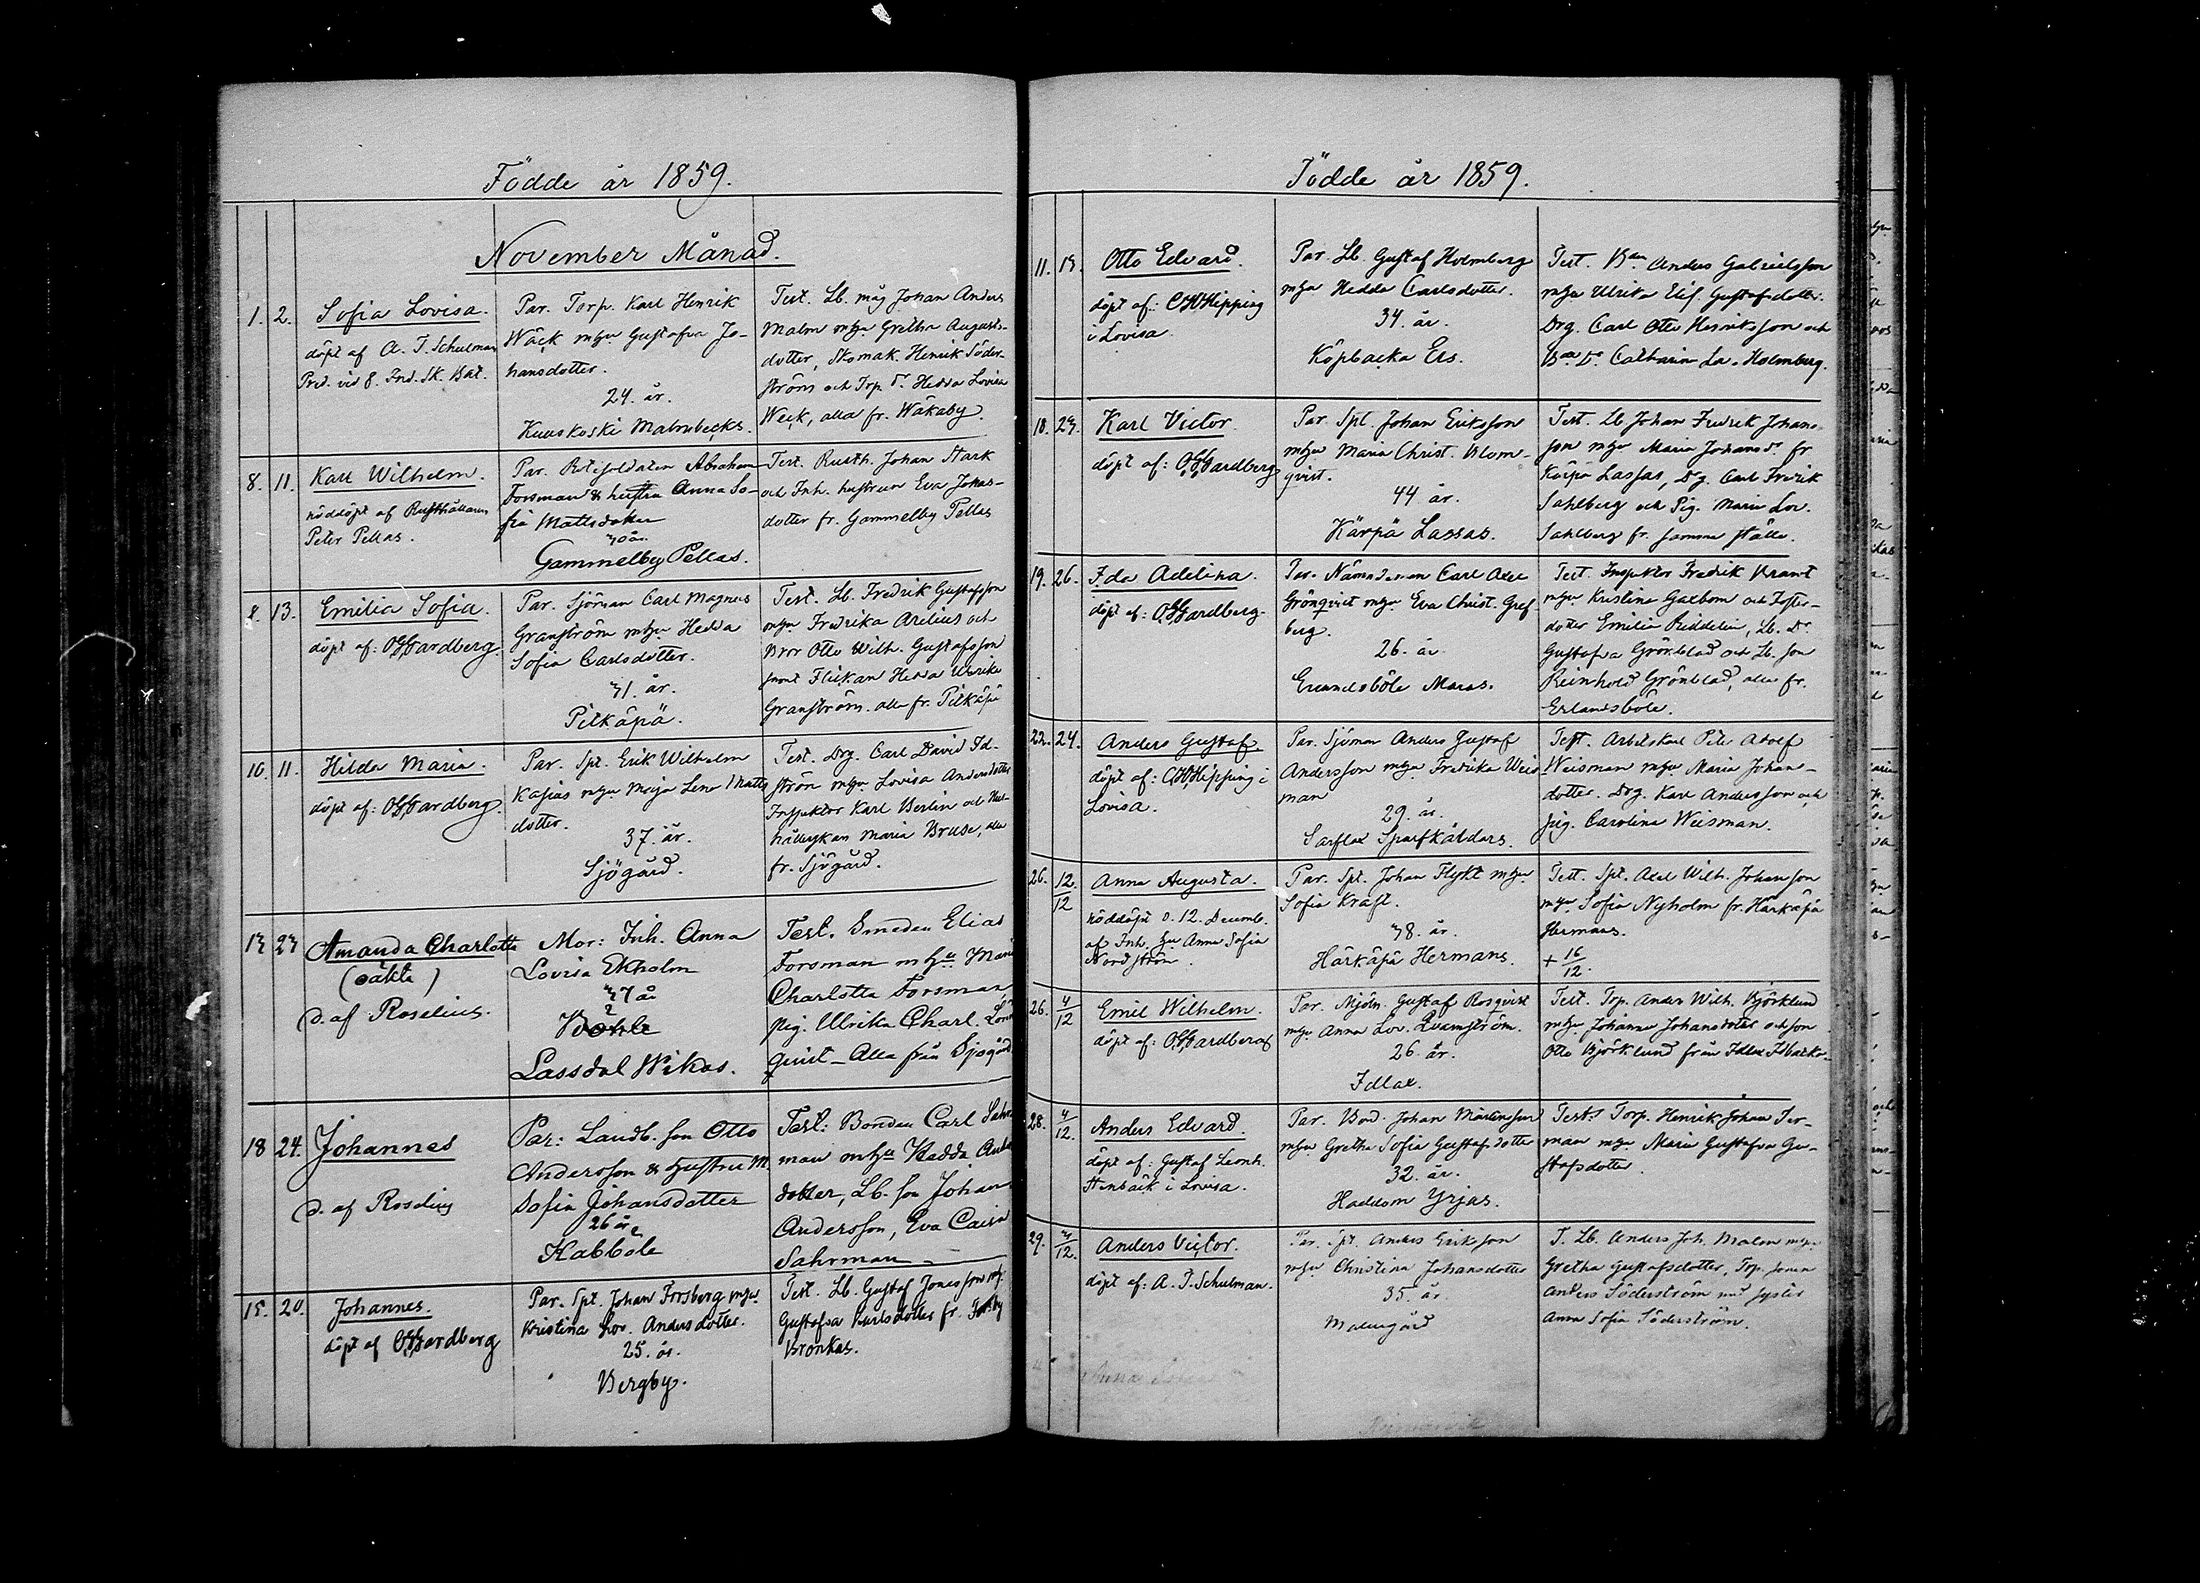 Födde år 1859.
November Månad.
1. 2. Sofia Lovisa.
döpt af A. T. Schulman
Pred. vid 8. Fnd. Sk. Bat.
Par. Torp. Karl Henrik
Wäck mhju Gustafva Jo-
hansdotter.
24. år.
Kuuskoski Malmbecks.
Test. Lb. måg Johan Anders
Malm mhju Gretha Augusts-
dotter, Skomak. Henrik Söder-
ström och Torp. dr. Hedda Lovisa
Weck, alla fr. Wåkaby
8. 11. Karl Wilhelm.
nöddöpt af Rusthållaren
Peter Pellas.
Par. Rotesoldaten Abraham
Forsman & hustru Anna So-
fia Mattsdotter
30 år.
Gammelby Pellas.
Test. Rusth. Johan Stark
och Inh. hustrun Eva Johas-
dotter fr. Gammelby Pellas
8. 13. Emilia Sofia.
döpt af: O. G. Gardberg.
Par. Sjöman Carl Magnus
Granström mhju Hedda
Sofia Carlsdotter.
31. år.
Pitkäpä.
Test. Lb. Fredrik Gustafsson
mhju Fredrika Arelius och
Bror Otto Wilh. Gustafsson
samt Flickan Hedda Ulrika
Granström. alla fr. Pitkäpä
10. 11. Hilda Maria.
döpt af: O. G. Gardberg.
Par. Spt. Erik Wilhelm
Kasias mhju Maja Lena Matts
dotter.
37. år.
Sjögård.
Test. Drg. Carl David Id-
ström mhju Lovisa Andersdotter
Inspektor Karl Berlin och Hus-
hållerskan Maria Bruse, alla
fr. Sjögård.
13 23 Amanda Charlotta
(oäkta)
d. af Roselius.
Mor: Inh. Anna
Lovisa Ekholm
37 år
Lassdal Wikas.
Test. Smeden Elias
Forsman mhju Maria
Charlotta Forsman
pig. Ulrika Charl. Lönn
quist – Alla från Sjögård
18 24. Johannes
d. af Roselius
Par: Landb. son Otto
Andersson & hustru M.
Sofia Johansdotter
26 år
Kabböle
Test: Bonden Carl Sahr
man mhju Hedda Anders
dotter, Lb. son Johan
Andersson, Eva Caisa
Sahrman –
15. 20. Johannes.
döpt af O. G. Gardberg
Par. Spt. Johan Forsberg mhju
Kristina Lov. Andersdotter.
25. år.
Bergby.
Test. Lb. Gustaf Jonesson mhj.
Gustafva Karlsdotter fr.
Bronkas.
Födde år 1859.
11. 13. Otto Edvard.
döpt af: C W Hipping
i Lovisa.
Par. Lb. Gustaf Holmberg
mhju Hedda Carlsdotter.
34. år.
Köpbacka Ers.
Test. Bden Anders Gabrielsson
mhju Ulrika Elis. Gustafsdotter.
Drg. Carl Otto Henriksson och
Bde Dr Catharina Lo. Holmberg.
18. 23. Karl Victor.
döpt af: O. G. Gardberg
Par. Spt. Johan Eriksson
mhju Maria Christ. Blom-
qvist.
44 år.
Kärpä Lassas.
Test. Lb Johan Fredrik Johans-
son mhju Maria Johansdr. fr
Kärpä Lassas, Dg. Carl Fredrik
Sahlberg och Pig. Maria Lov.
Sahlberg fr. samma ställe.
19. 26. Ida Adelina.
döpt af: O. G. Gardberg.
Par. Nämndeman Carl Axel
Grönqvist mhju Eva Christ. Gref
berg.
26. år.
Erlandsböle Maras.
Test. Inspektor Fredrik Bramt
mhju Kristina Galbom och Foster-
dotter Emilia Riddelin, Lb. Dr
Gustafva Grönblad och Lb. son
Reinhold Grönblad, alla fr.
Erlandsböle.
22. 24. Anders Gustaf.
döpt af: C W Hipping i
Lovisa.
Par. Sjöman Anders Gustaf
Andersson mhju Fredrika Weis
man
29. år.
Sarflax Sparfkärdars.
Test. Arbetskarl Peter Adolf
Weisman mhju Maria Johans-
dotter. Drg. Karl Andersson och
pig. Carolina Weisman.
26. 12/12 Anna Augusta.
nöddöpt d. 12. Decemb.
af Inh. hu Anna Sofia
Nordström.
Par. Spt. Johan Flykt mhju
Sofia Kraft.
38. år.
Härkäpä Hermans.
Test. Spt. Axel Wilh. Johansson
mhju Sofia Nyholm fr. Härkäpä
Hermans.
+ 16/12.
26. 4/12 Emil Wilhelm.
döpt af: O. G. Gardberg
Par. Mjöln. Gustaf Rosqvist
mhju Anna Lov. Qvarnström.
26. år.
Idlax.
Test. Torp. Anders Wilh. Björklund
mhju Johanna Johansdotter och son
Otto Björklund från Idlax Idbacka.
28. 4/12. Anders Edvard.
döpt af: Gustaf Leonh.
Stenbäck i Lovisa.
Par. Bond. Johan Mårtensson
mhju Gretha Sofia Gustafsdotter
32. år.
Haddom Yrjas.
Test. Torp. Henrik Johan For-
man mhju Maria Gustafva Gu-
stafsdotter.
29. 3/12. Anders Victor.
döpt af: A. T. Schulman.
Par. Spt. Anders Eriksson
mhju Christina Johansdotter
35. år.
Malmgård
T. Lb. Anders Joh. Malm mhju
Gretha Gustafsdotter, Torp. sonen
Anders Söderström med syster
Anna Sofia Söderström.